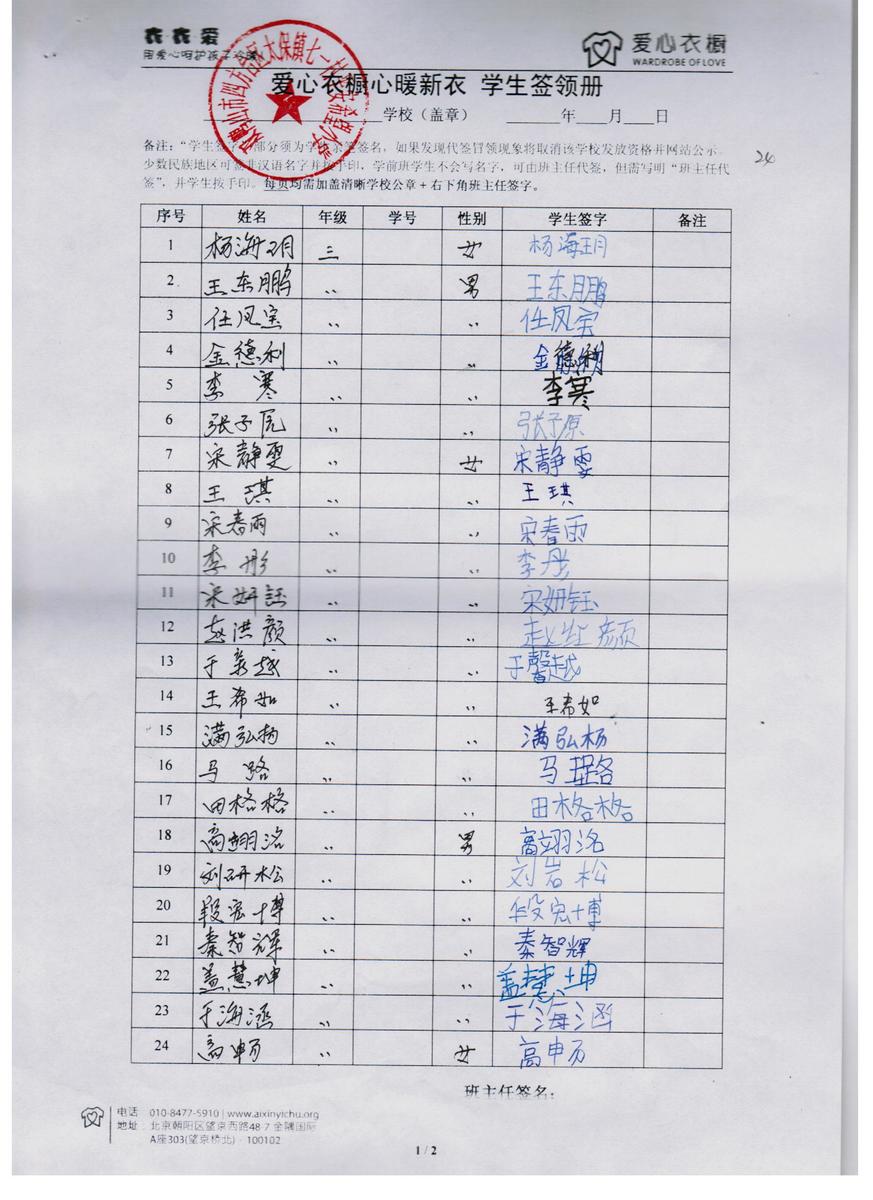 袁袁爱
用爱心呵护孩子冷暖
爱心衣橱
WARDROBE OF LOVE
爱心衣橱心暖新衣 学生签领册
学校（盖章） 年 月 日
备注：“学生签字”部分须为学生亲笔签名，如果发现代签冒领现象将取消该学校发放资格并网站公示。
少数民族地区可签非汉语名字并按手印，学前班学生不会写名字，可由班主任代签，但需写明“班主任代
签”，并学生按手印。每页均需加盖清晰学校公章+右下角班主任签字。
24
序号 姓名 年级 学号 性别 学生签字 备注
1 杨海玥 三 女 杨海玥
2 王东鹏 〃 男 王东鹏
3 任凤宝 〃 〃 任凤宝
4 金德利 〃 〃 金德利
5 李寒 〃 〃 李寒
6 张子原 〃 〃 张子原
7 宋静雯 〃 女 宋静雯
8 王琪 〃 〃 王琪
9 宋春雨 〃 〃 宋春雨
10 李彤 〃 〃 李彤
11 宋妍钰 〃 〃 宋妍钰
12 赵洪颜 〃 〃 赵 颜
13 于 越 〃 〃 于馨越
14 王希如 〃 〃 王希如
15 满弘杨 〃 〃 满弘杨
16 马 路 〃 〃 马 路
17 田格格 〃 〃 田格格
18 高翊洺 〃 男 高翊洺
19 刘研松 〃 〃 刘岩松
20 段宏博 〃 〃 段宏博
21 秦智辉 〃 〃 秦智辉
22 盖慧坤 〃 〃 盖慧坤
23 于海涵 〃 〃 于海涵
24 高畅 〃 女 高 万
班主任签名：
电话 010-8477-5910 | www.aixinyichu.org
地址：北京朝阳区望京西路48-7 金隅国际
A座303(望京桥北) · 100102
1 / 2